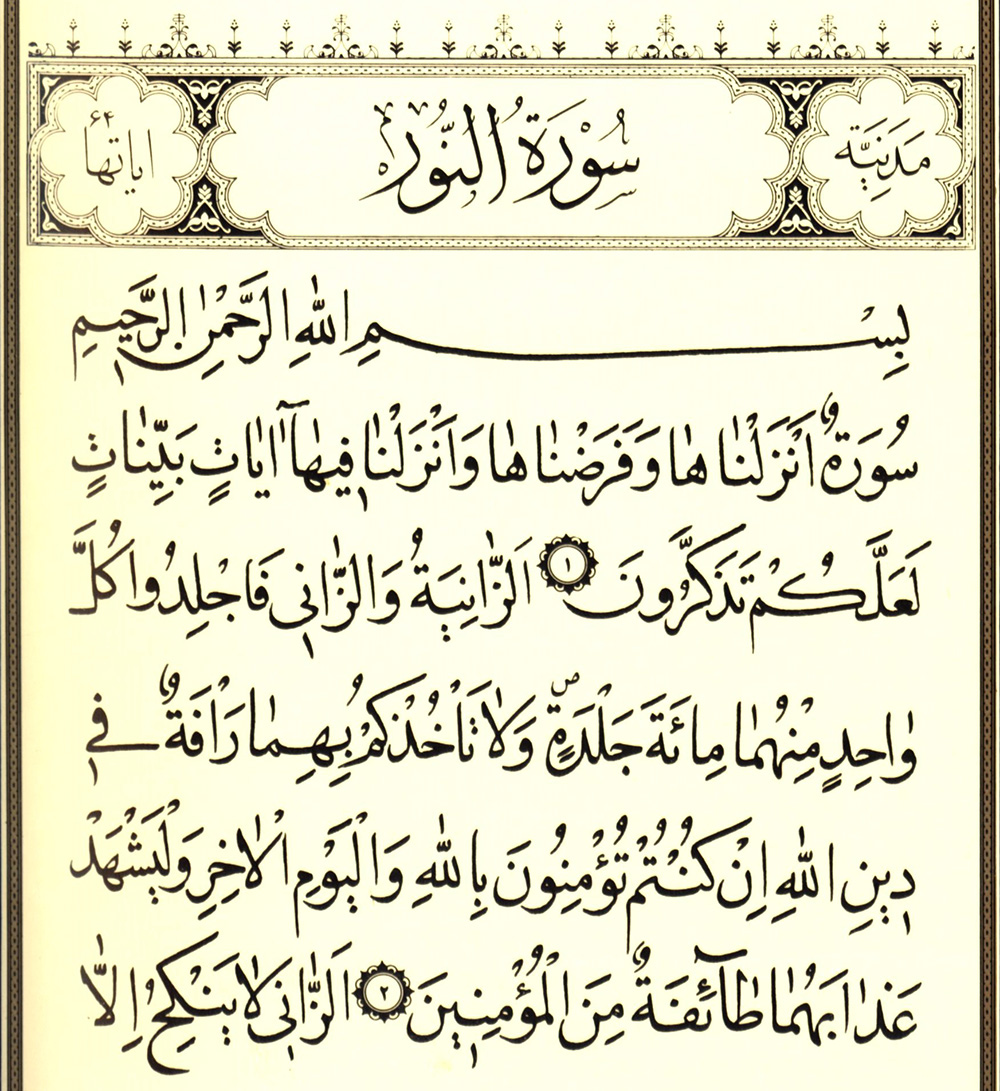 مَدَنِيَّة
سُوْرَةُ النُّوْرِ
اياتها ۶۴
بِسْمِ اللهِ الرَّحْمٰنِ الرَّحِيمِ
سُورَةٌ اَنْزَلْنَاهَا وَفَرَضْنَاهَا وَاَنْزَلْنَا فِيهَٓا اٰيَاتٍ بَيِّنَاتٍ
لَعَلَّكُمْ تَذَكَّرُونَ ١ اَلزَّانِيَةُ وَالزَّانِي فَاجْلِدُوا كُلَّ
وَاحِدٍ مِنْهُمَا مِائَةَ جَلْدَةٍ ۖ وَلَا تَأْخُذْكُمْ بِهِمَا رَأْفَةٌ فِي
دِينِ اللهِ اِنْ كُنْتُمْ تُؤْمِنُونَ بِاللهِ وَالْيَوْمِ الْاٰخِرِ وَلْيَشْهَدْ
عَذَابَهُمَا طَٓائِفَةٌ مِنَ الْمُؤْمِنِينَ ٢ اَلزَّانِي لَا يَنْكِحُ اِلَّا